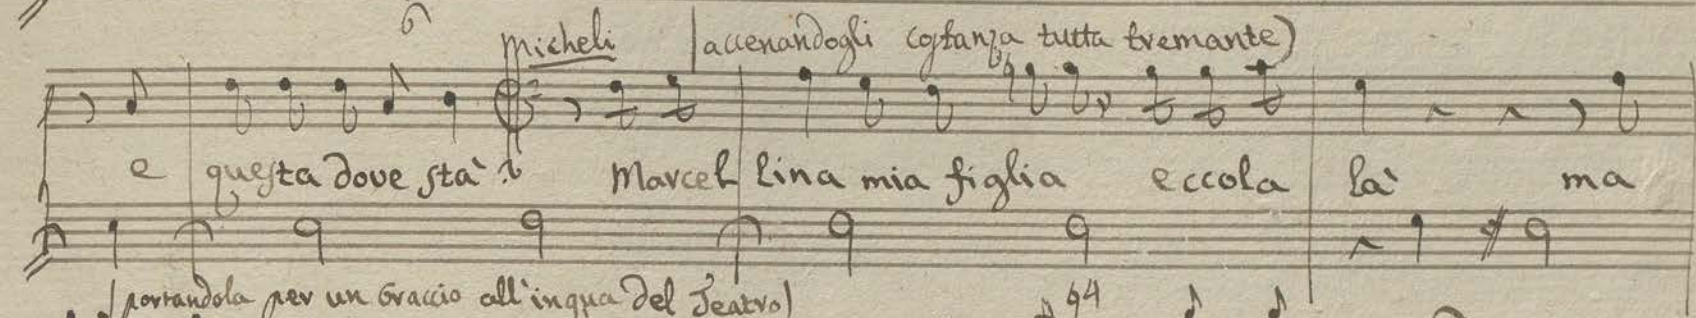 6
Micheli
(accenandogli Costanza tutta tremante)
e questa dove stà? Marcellina mia figlia eccola là ma
(portandola per un braccio all'ingua del Teatro)
♮4